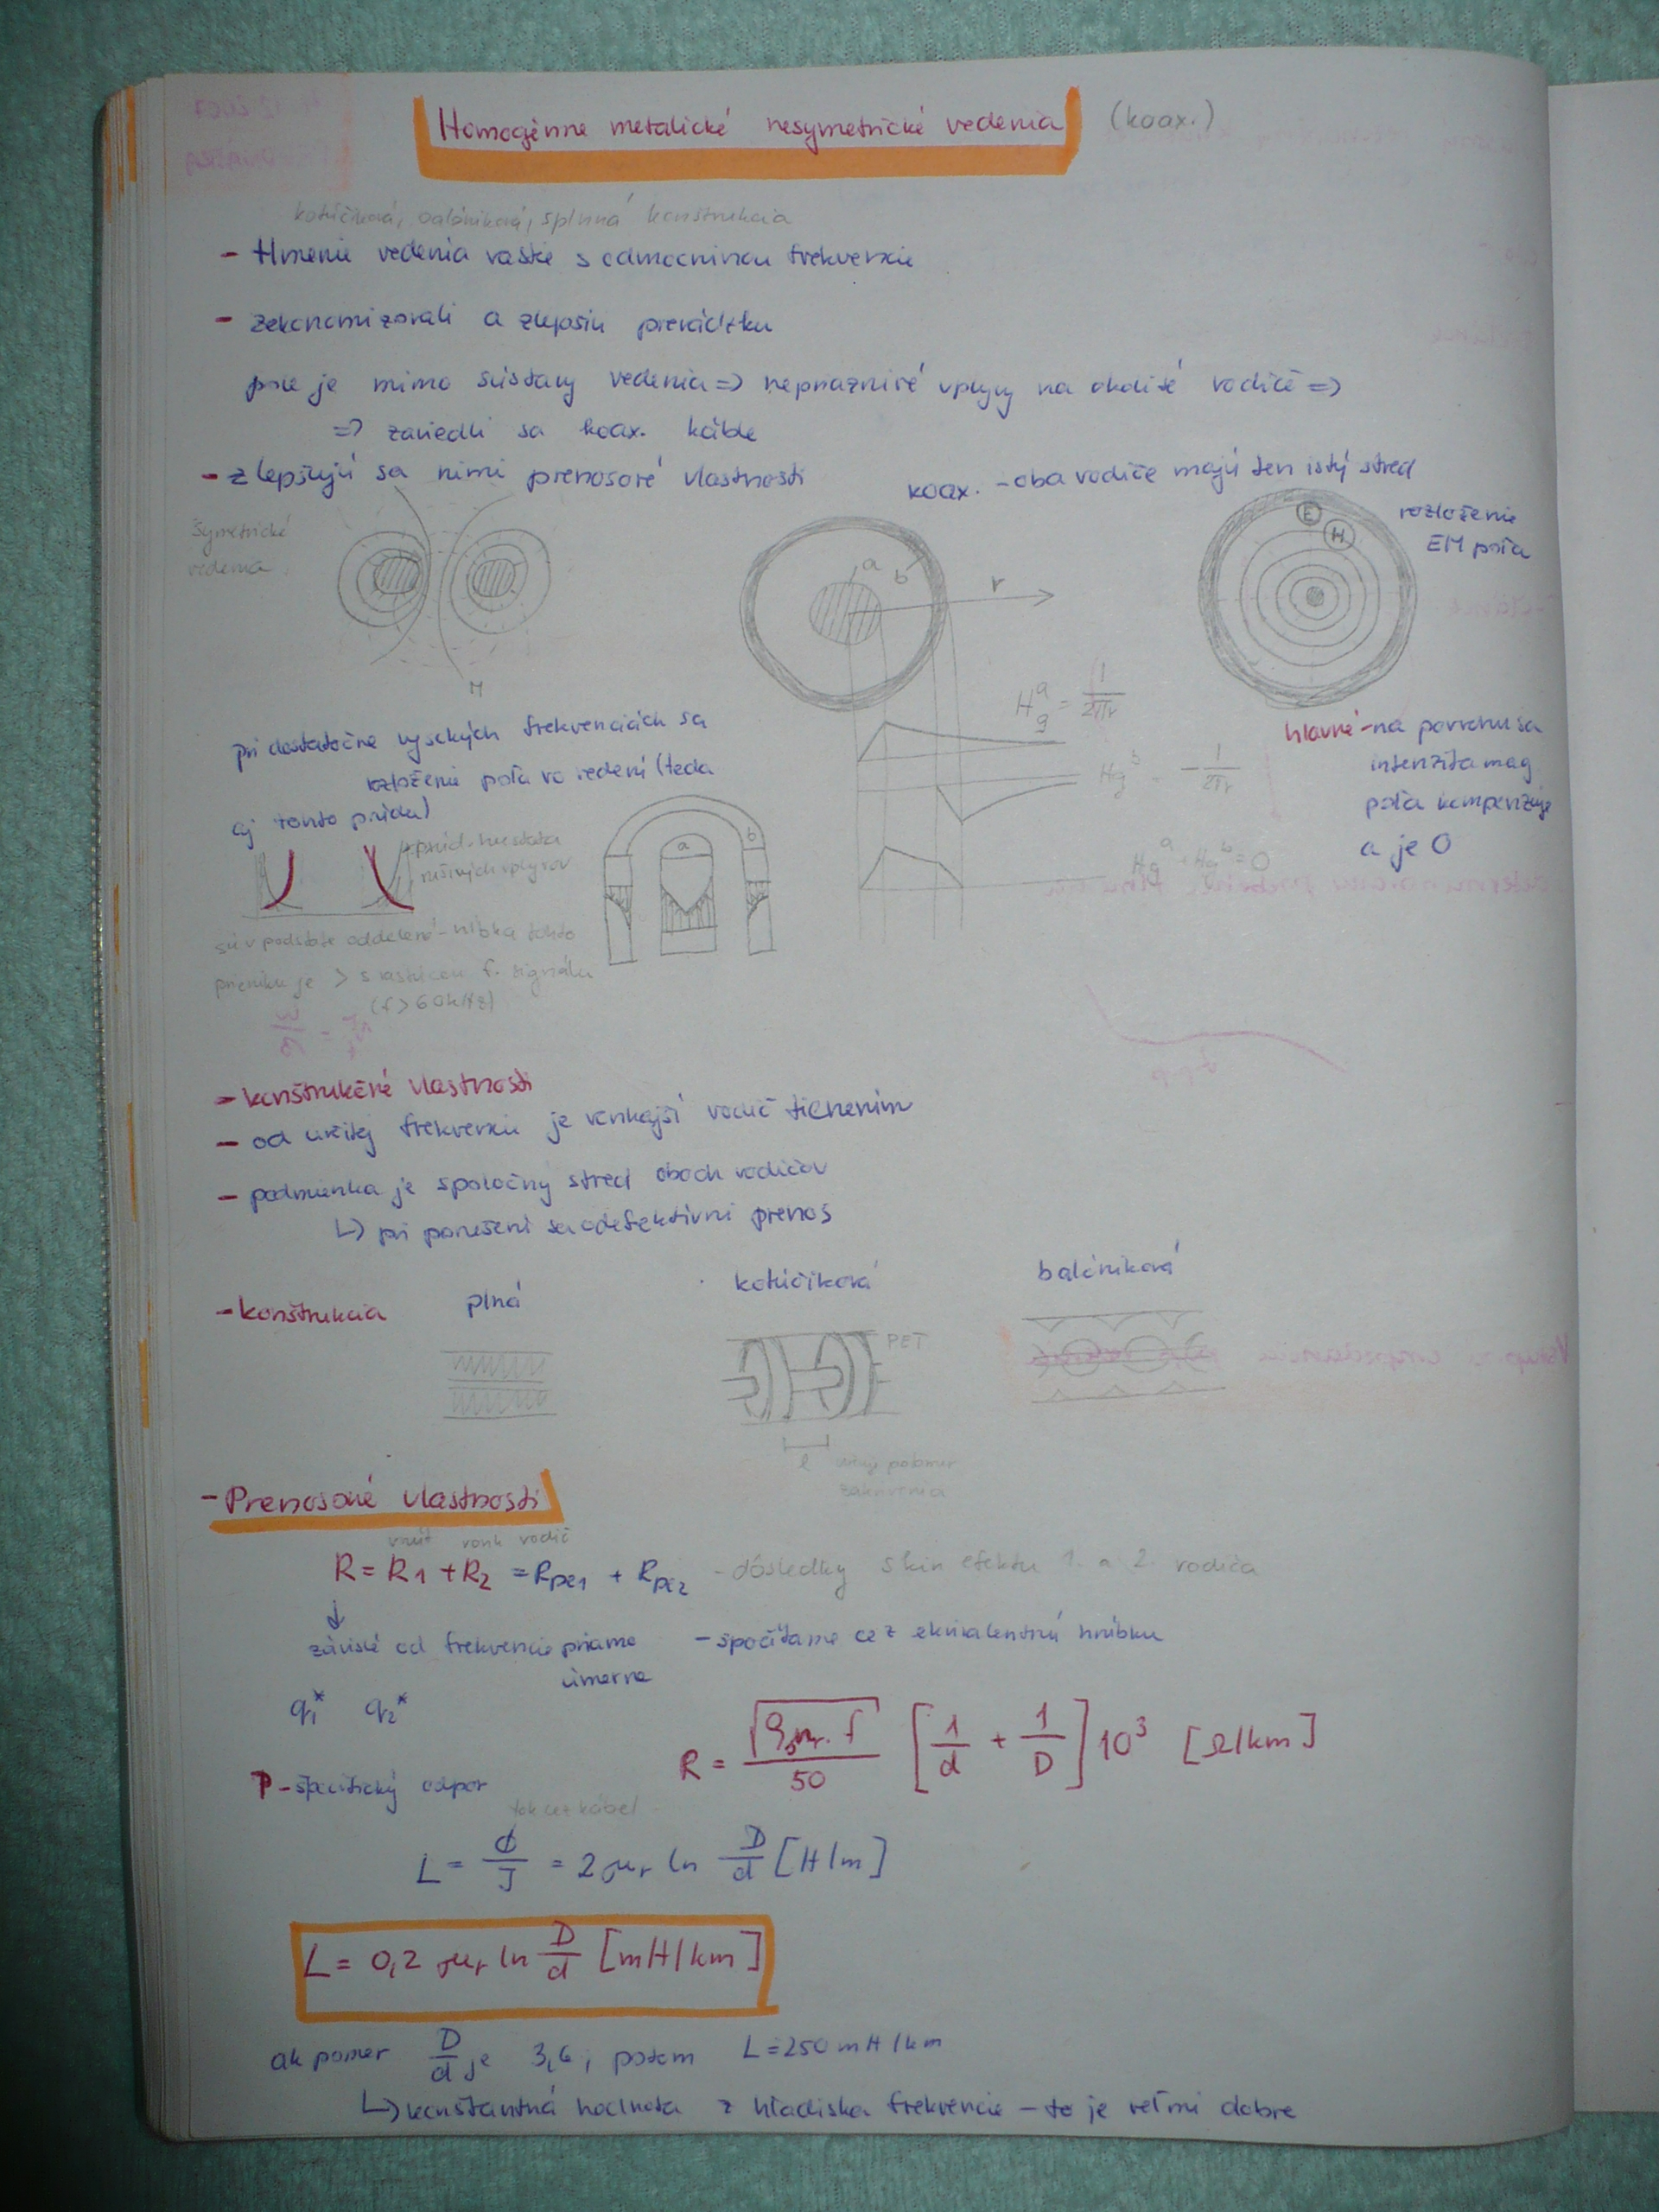 Homogénne metalické nesymetrické vedenia (koax.)
kotúčiková, balóniková, splnná konštrukcia
- tlmenie vedenia rastie s odmocninou frekvencie
- zekonomizovali a zlepšili prevádzku
pole je mimo sústavy vedenia => nepriaznivé vplyvy na okolité vodiče =>
=> zaviedli sa koax. káble
- zlepšujú sa nimi prenosové vlastnosti
koax. - oba vodiče majú ten istý stred
symetrické
vedenia
a b
r
E
H
rozloženie
EM poľa
M
H_g^a = 1/2πr
H_g^b = -1/2πr
H_g^a + H_g^b = 0
hlavné - na povrchu sa
intenzita mag
poľa kompenzuje
a je 0
pri dostatočne vysokých frekvenciách sa
rozloženie poľa vo vedení (teda
aj tohto prúdu)
prúd. hustota
rušivých vplyvov
a b
sú v podstate oddelené - hĺbka tohto
prieniku je > s rastúcou f. signálu
(f > 60kHz)
- konštrukčné vlastnosti
- od určitej frekvencie je vonkajší vodič tienením
- podmienka je spoločný stred oboch vodičov
↳ pri porušení sa defektívni prenos
- konštrukcia plná kotúčiková balóniková
PET
l určuje polomer
zakrivenia
- Prenosové vlastnosti
vnút vonk vodič
R = R1 + R2 = Rpe1 + Rpe2 - dôsledky skin efektu 1. a 2. vodiča
↓
závislé od frekvencie priamo - spočítame cez ekvivalentnú hrúbku
úmerne
q1* q2*
R = √(ρ μr. f)/50 [1/d + 1/D] 10³ [Ω/km]
ρ - špecifický odpor
tok cez kábel
L = Φ/I = 2μr ln D/d [H/m]
L = 0,2 μr ln D/d [mH/km]
ak pomer D/d je 3,6 ; potom L = 250 mH/km
↳ konštantná hodnota z hľadiska frekvencie - to je veľmi dobre